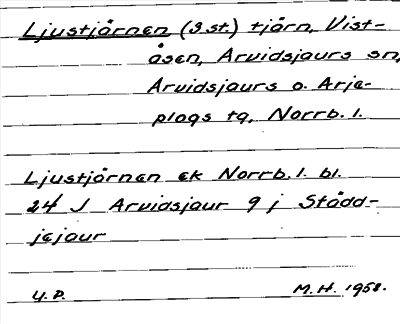 Ljustjårnen (3 st.) tjårn, Vist-
åsen, Arvidsjaurs sn,
Arvidsjaurs o. Arje-
plogs tg, Norrb. l.
Ljustjårnen ek Norrb. l. bl.
24 J Arvidsjaur 9 j Stådd-
jejaur
U.P. M.H. 1958.